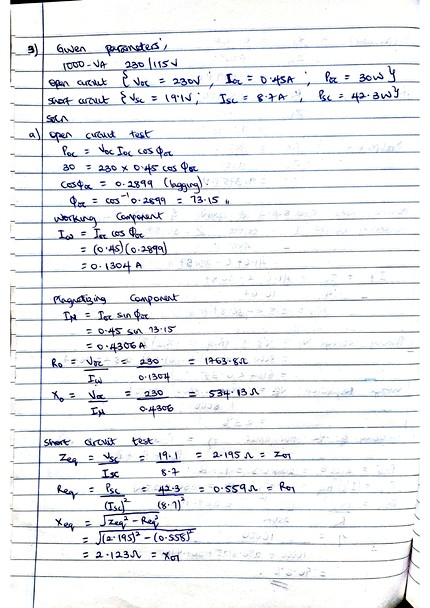 3) Given parameters,
1000-VA 230/115V
open circuit { Voc = 230V ; Ioc = 0.45A ; Poc = 30W }
short circuit { Vsc = 19.1V ; Isc = 8.7A ; Psc = 42.3W }
soln
a) open circuit test
Poc = Voc Ioc cos φoc
30 = 230 x 0.45 cos φoc
cosφoc = 0.2899 (lagging)
φoc = cos⁻¹ 0.2899 = 73.15 "
Working Component
Iω = Ioc cos φoc
= (0.45)(0.2899)
= 0.1304 A
Magnetizing Component
IM = Ioc sin φoc
= 0.45 sin 73.15
= 0.4306 A
Ro = Voc / Iω = 230 / 0.1304 = 1763.8Ω
Xo = Voc / IM = 230 / 0.4306 = 534.13Ω
short circuit test
Zeq = Vsc / Isc = 19.1 / 8.7 = 2.195Ω = Z01
Req = Psc / (Isc)² = 42.3 / (8.7)² = 0.559Ω = R01
Xeq = √Zeq² - Req²
= √(2.195)² - (0.558)²
= 2.123Ω = X01